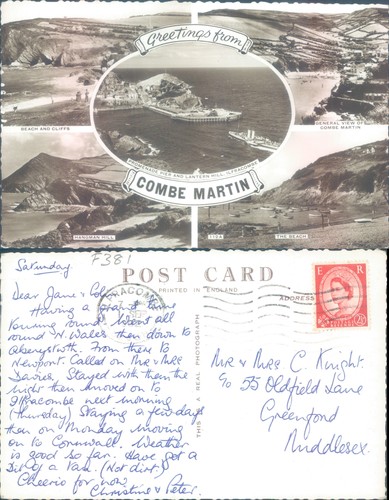 Greetings from
BEACH AND CLIFFS
GENERAL VIEW OF
COMBE MARTIN
PROMENADE PIER AND LANTERN HILL, ILFRACOMBE
COMBE MARTIN
HANGMAN HILL
THE BEACH
F381
Saturday
POST CARD
PRINTED IN ENGLAND
ADDRESS
THIS IS A REAL PHOTOGRAPH
E R
Dear Jane &
Having a great time
touring round. Went all
round N. Wales then down to
Aberystwyth. From there to
Newport. Called on Mr & Mrs
Davies. Stayed with them the
night then moved on to
Ilfracombe next morning
(Thursday) Staying a few days
then on Monday moving
on to Cornwall. Weather
is good so far. Have got a
bit of a tan. (Not dirt)
Cheerio for now
Christine & Peter.
Mr & Mrs C. Knight.
c/o 55 Oldfield Lane
Greenford
Middlesex.